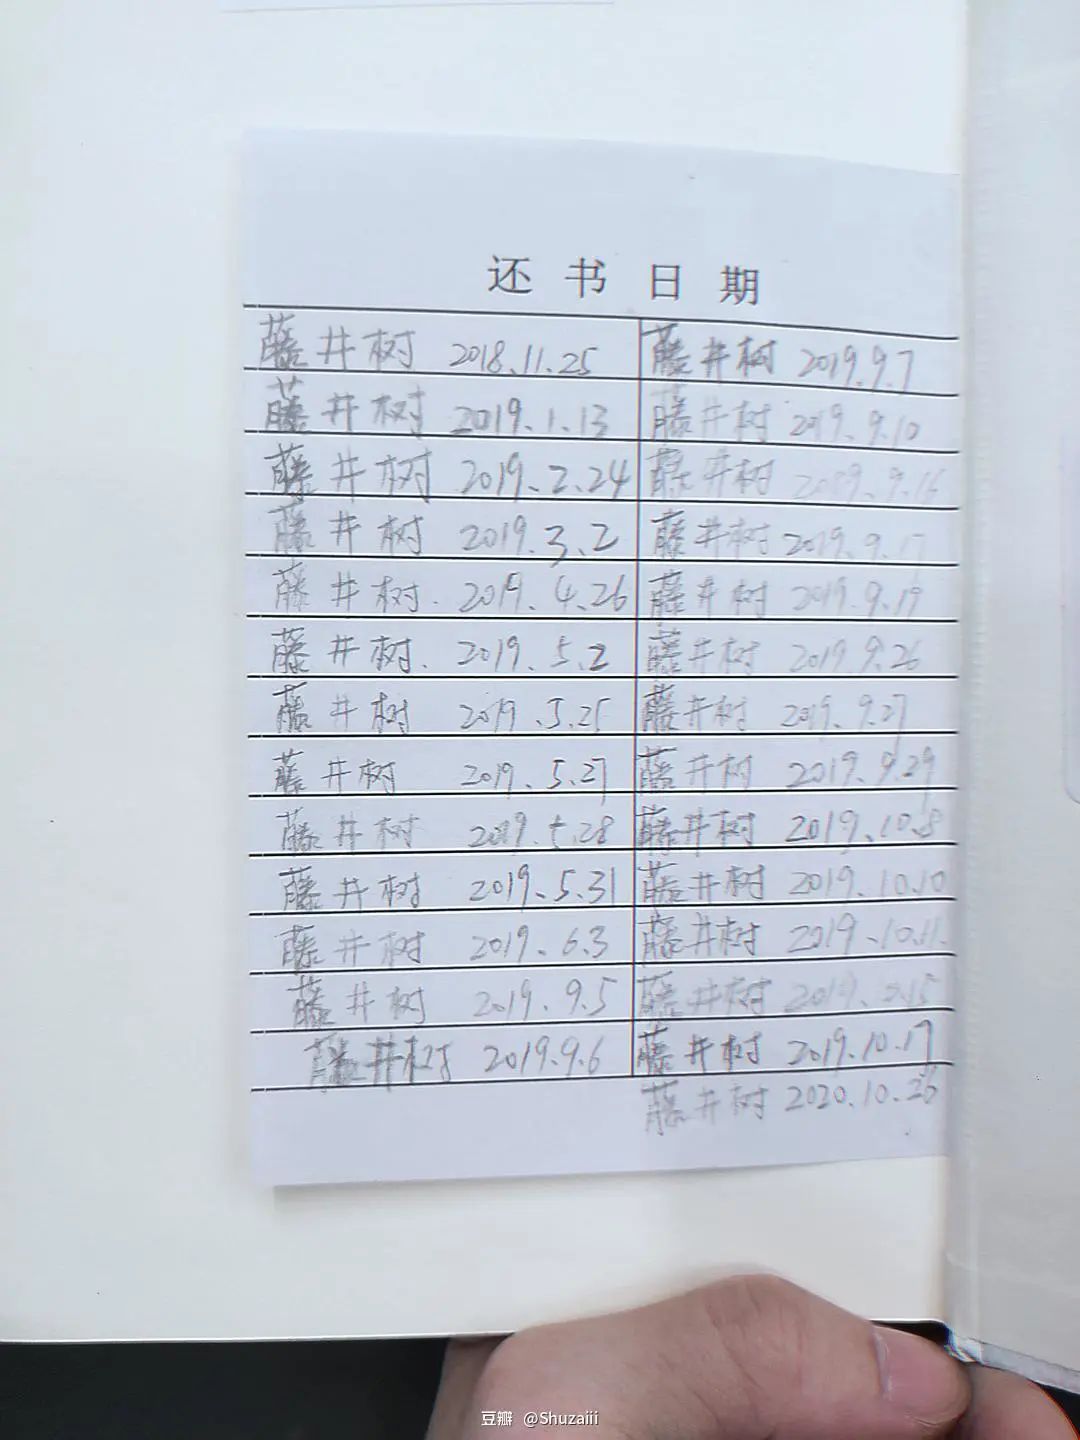 还书日期
藤井树 2018.11.25 藤井树 2019.9.7
藤井树 2019.1.13 藤井树 2019.9.10
藤井树 2019.2.24 藤井树 2019.9.16
藤井树 2019.3.2 藤井树 2019.9.17
藤井树. 2019.4.26 藤井树 2019.9.19
藤井树. 2019.5.2 藤井树 2019.9.26
藤井树 2019.5.25 藤井树 2019.9.27
藤井树 2019.5.27 藤井树 2019.9.29
藤井树 2019.5.28 藤井树 2019.10.8
藤井树 2019.5.31 藤井树 2019.10.10
藤井树 2019.6.3 藤井树 2019.10.11.
藤井树 2019.9.5 藤井树 2019.10.15
藤井树 2019.9.6 藤井树 2019.10.17
藤井树 2020.10.26
豆瓣 @Shuzaiii